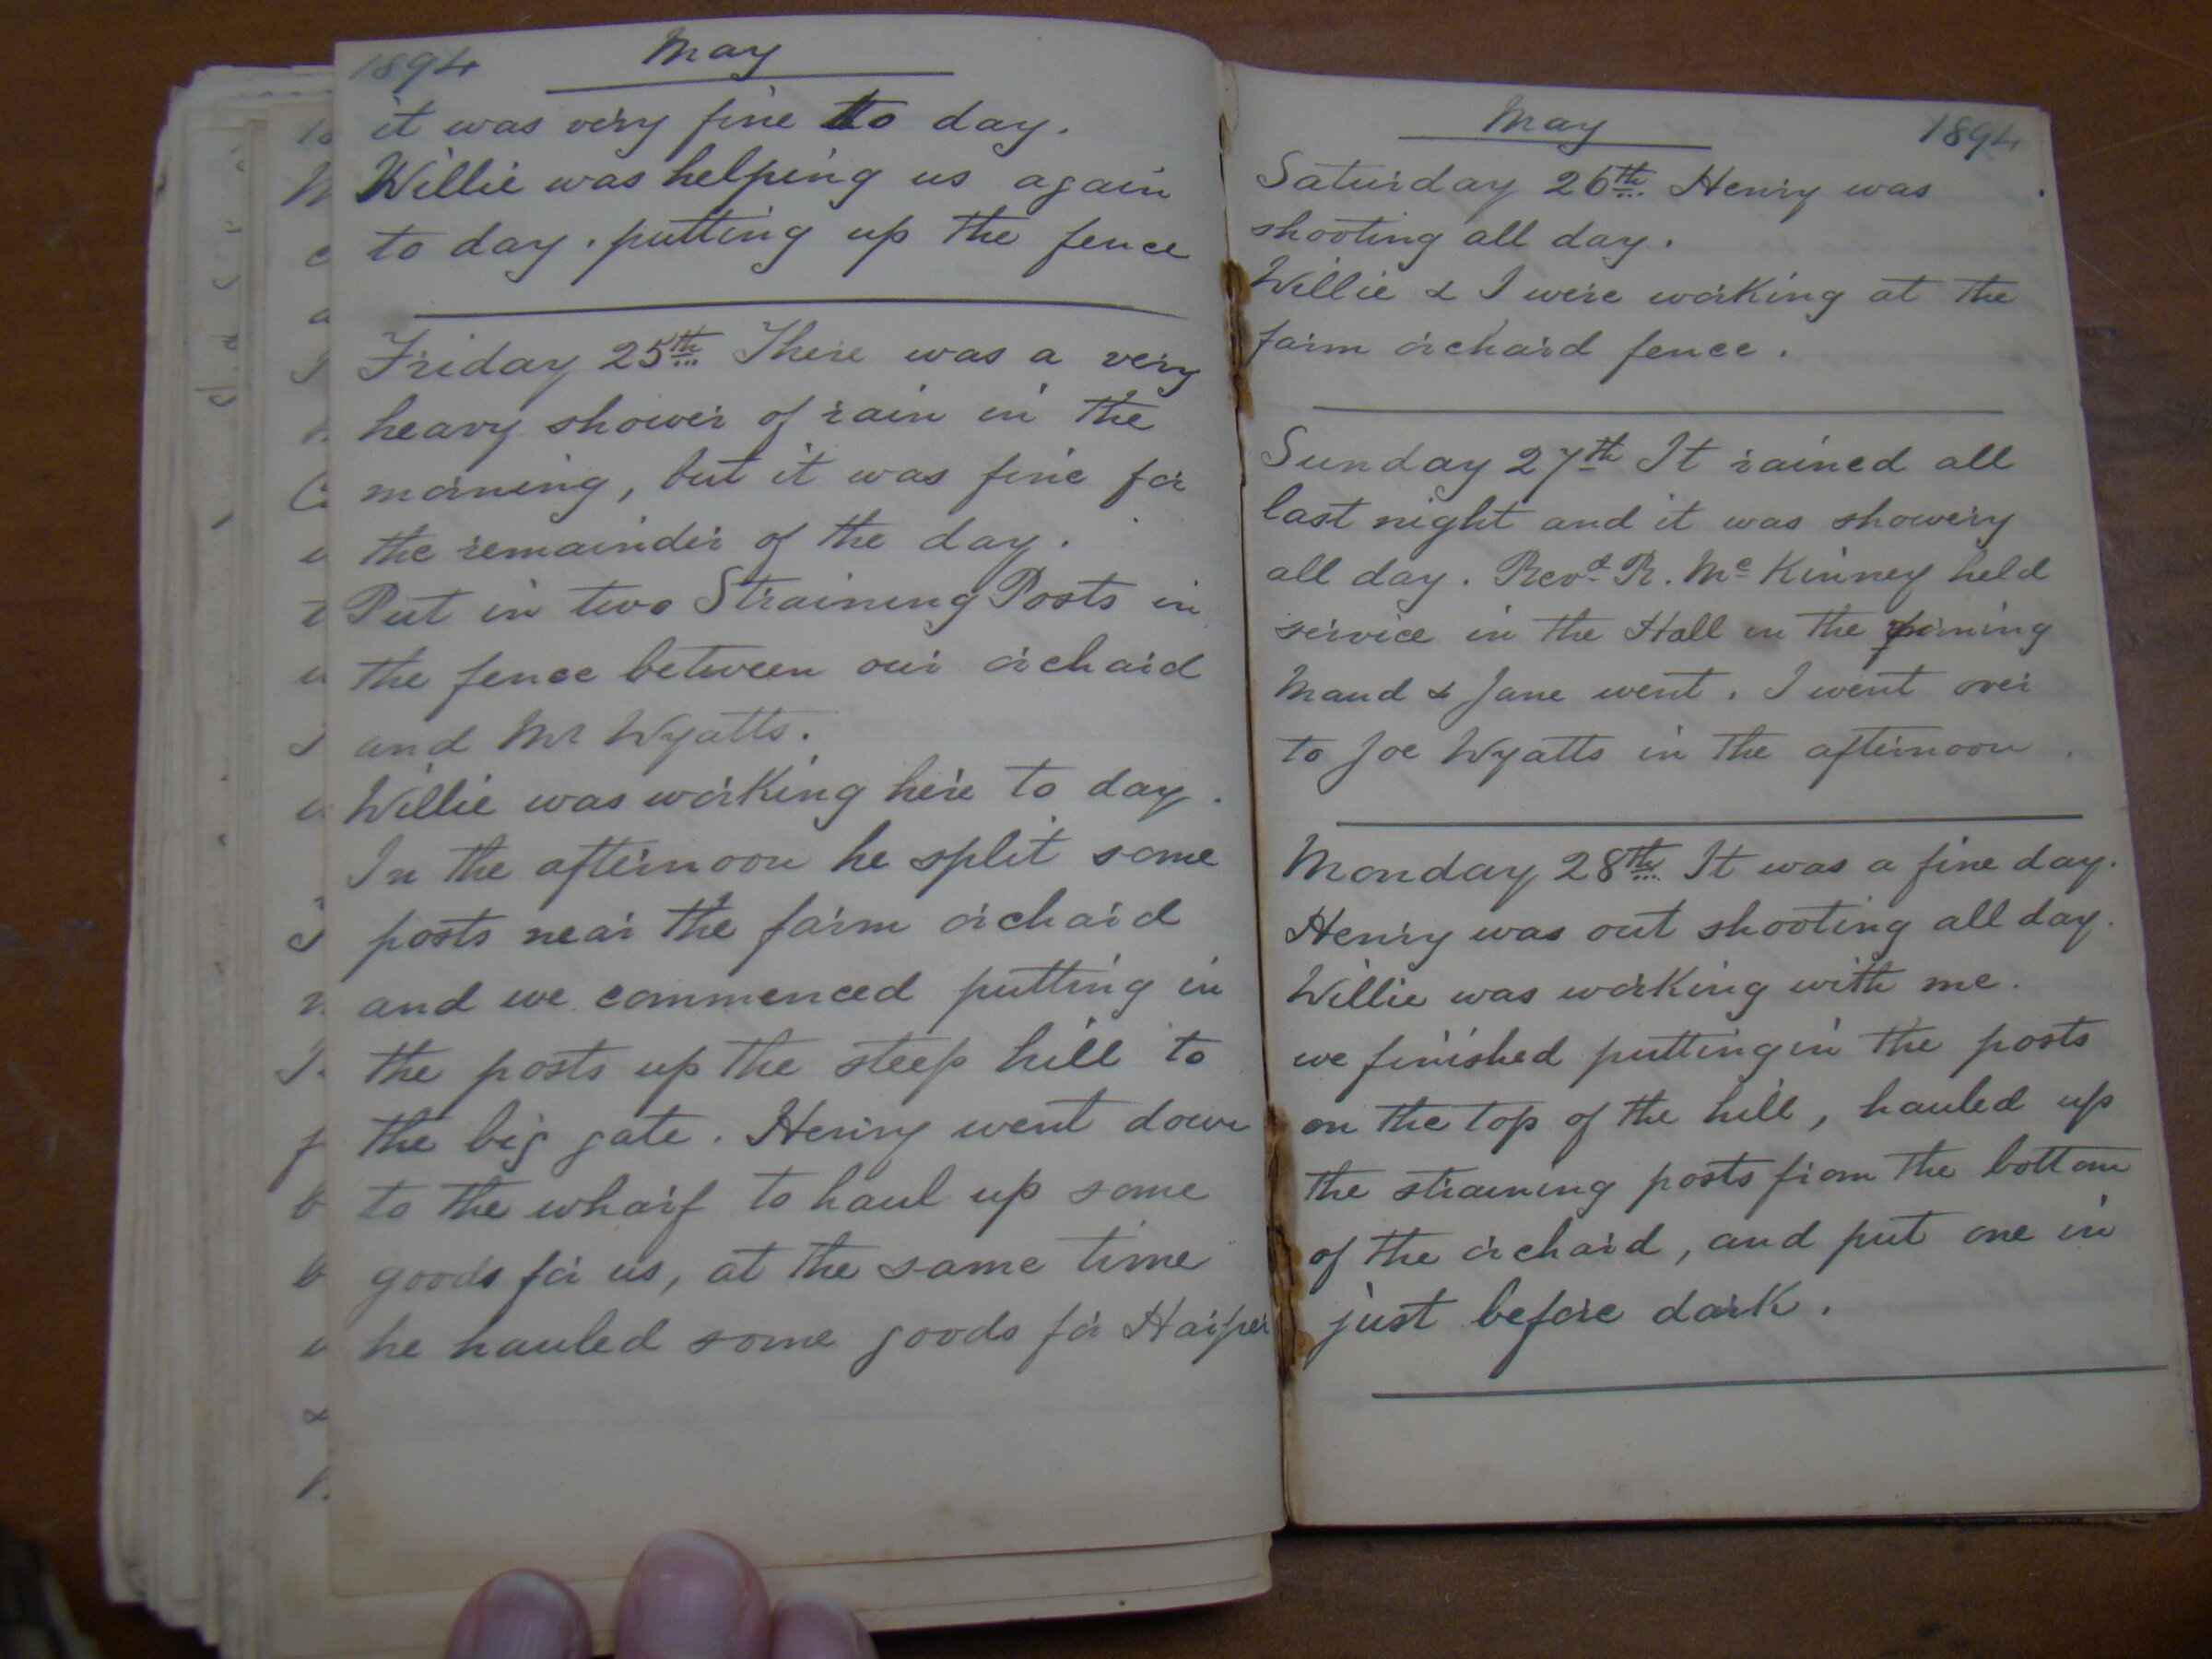 1894 May
it was very fine to day.
Willie was helping us again
to day. putting up the fence
Friday 25th There was a very
heavy shower of rain in the
morning, but it was fine for
the remainder of the day.
Put in two Straining Posts in
the fence between our orchard
and Mr Wyatts.
Willie was working here to day.
In the afternoon he split some
posts near the farm orchard
and we commenced putting in
the posts up the steep hill to
the big gate. Henry went down
to the wharf to haul up some
goods for us, at the same time
he hauled some goods for Harper
May 1894
Saturday 26th Henry was
shooting all day.
Willie & I were working at the
farm orchard fence.
Sunday 27th It rained all
last night and it was showery
all day. Revd R. McKinney held
service in the Hall in the
Maud & Jane went. I went over
to Joe Wyatts in the afternoon.
Monday 28th It was a fine day.
Henry was out shooting all day.
Willie was working with me.
we finished putting in the posts
on the top of the hill, hauled up
the straining posts from the bottom
of the orchard, and put one in
just before dark.